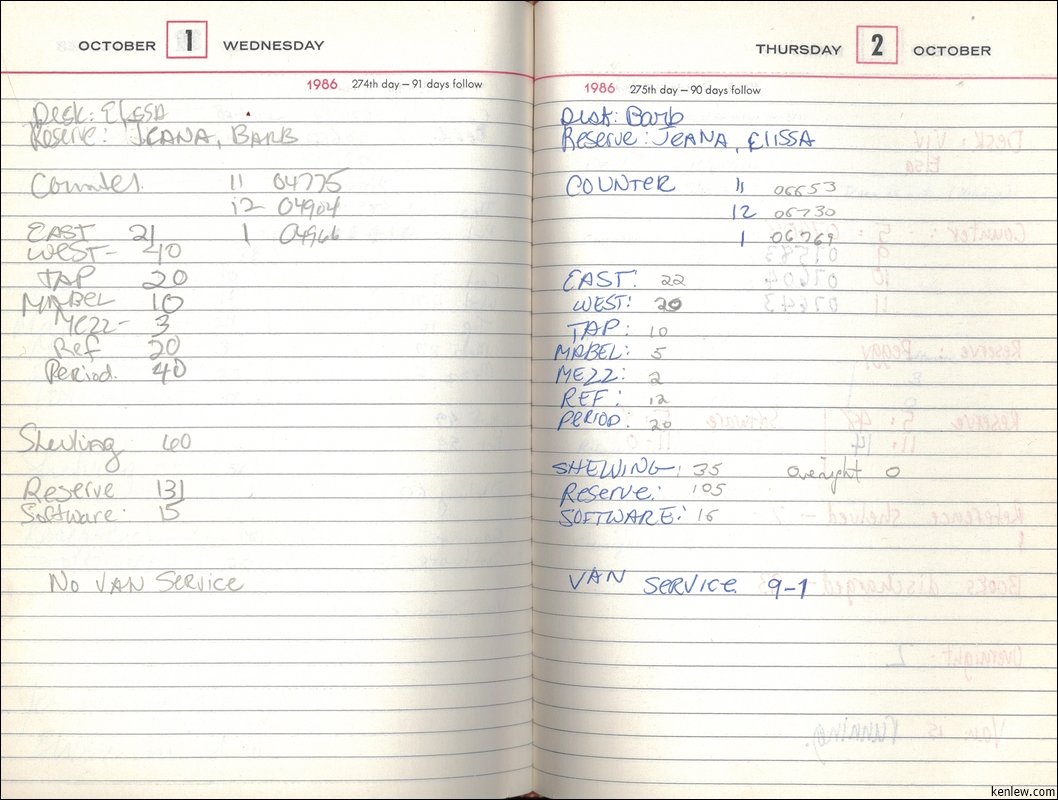 OCTOBER 1 WEDNESDAY
1986 274th day — 91 days follow
Desk: Elissa
Reserve: JEANA, BARB
Counter 11 04775
12 04904
EAST 21 1 04966
WEST- 40
TAP 20
MABEL 10
Mezz- 3
Ref 20
Period. 40
Shelving 60
Reserve 131
Software: 15
No VAN Service
THURSDAY 2 OCTOBER
1986 275th day — 90 days follow
Desk: Barb
Reserve: JEANA, ELISSA
COUNTER 11 06653
12 06730
1 06769
EAST: 22
WEST: 20
TAP: 10
MABEL: 5
MEZZ: 2
REF: 12
PERIOD: 20
SHELVING: 35 Overnight 0
Reserve: 105
SOFTWARE: 16
VAN SERVICE 9-1
kenlew.com